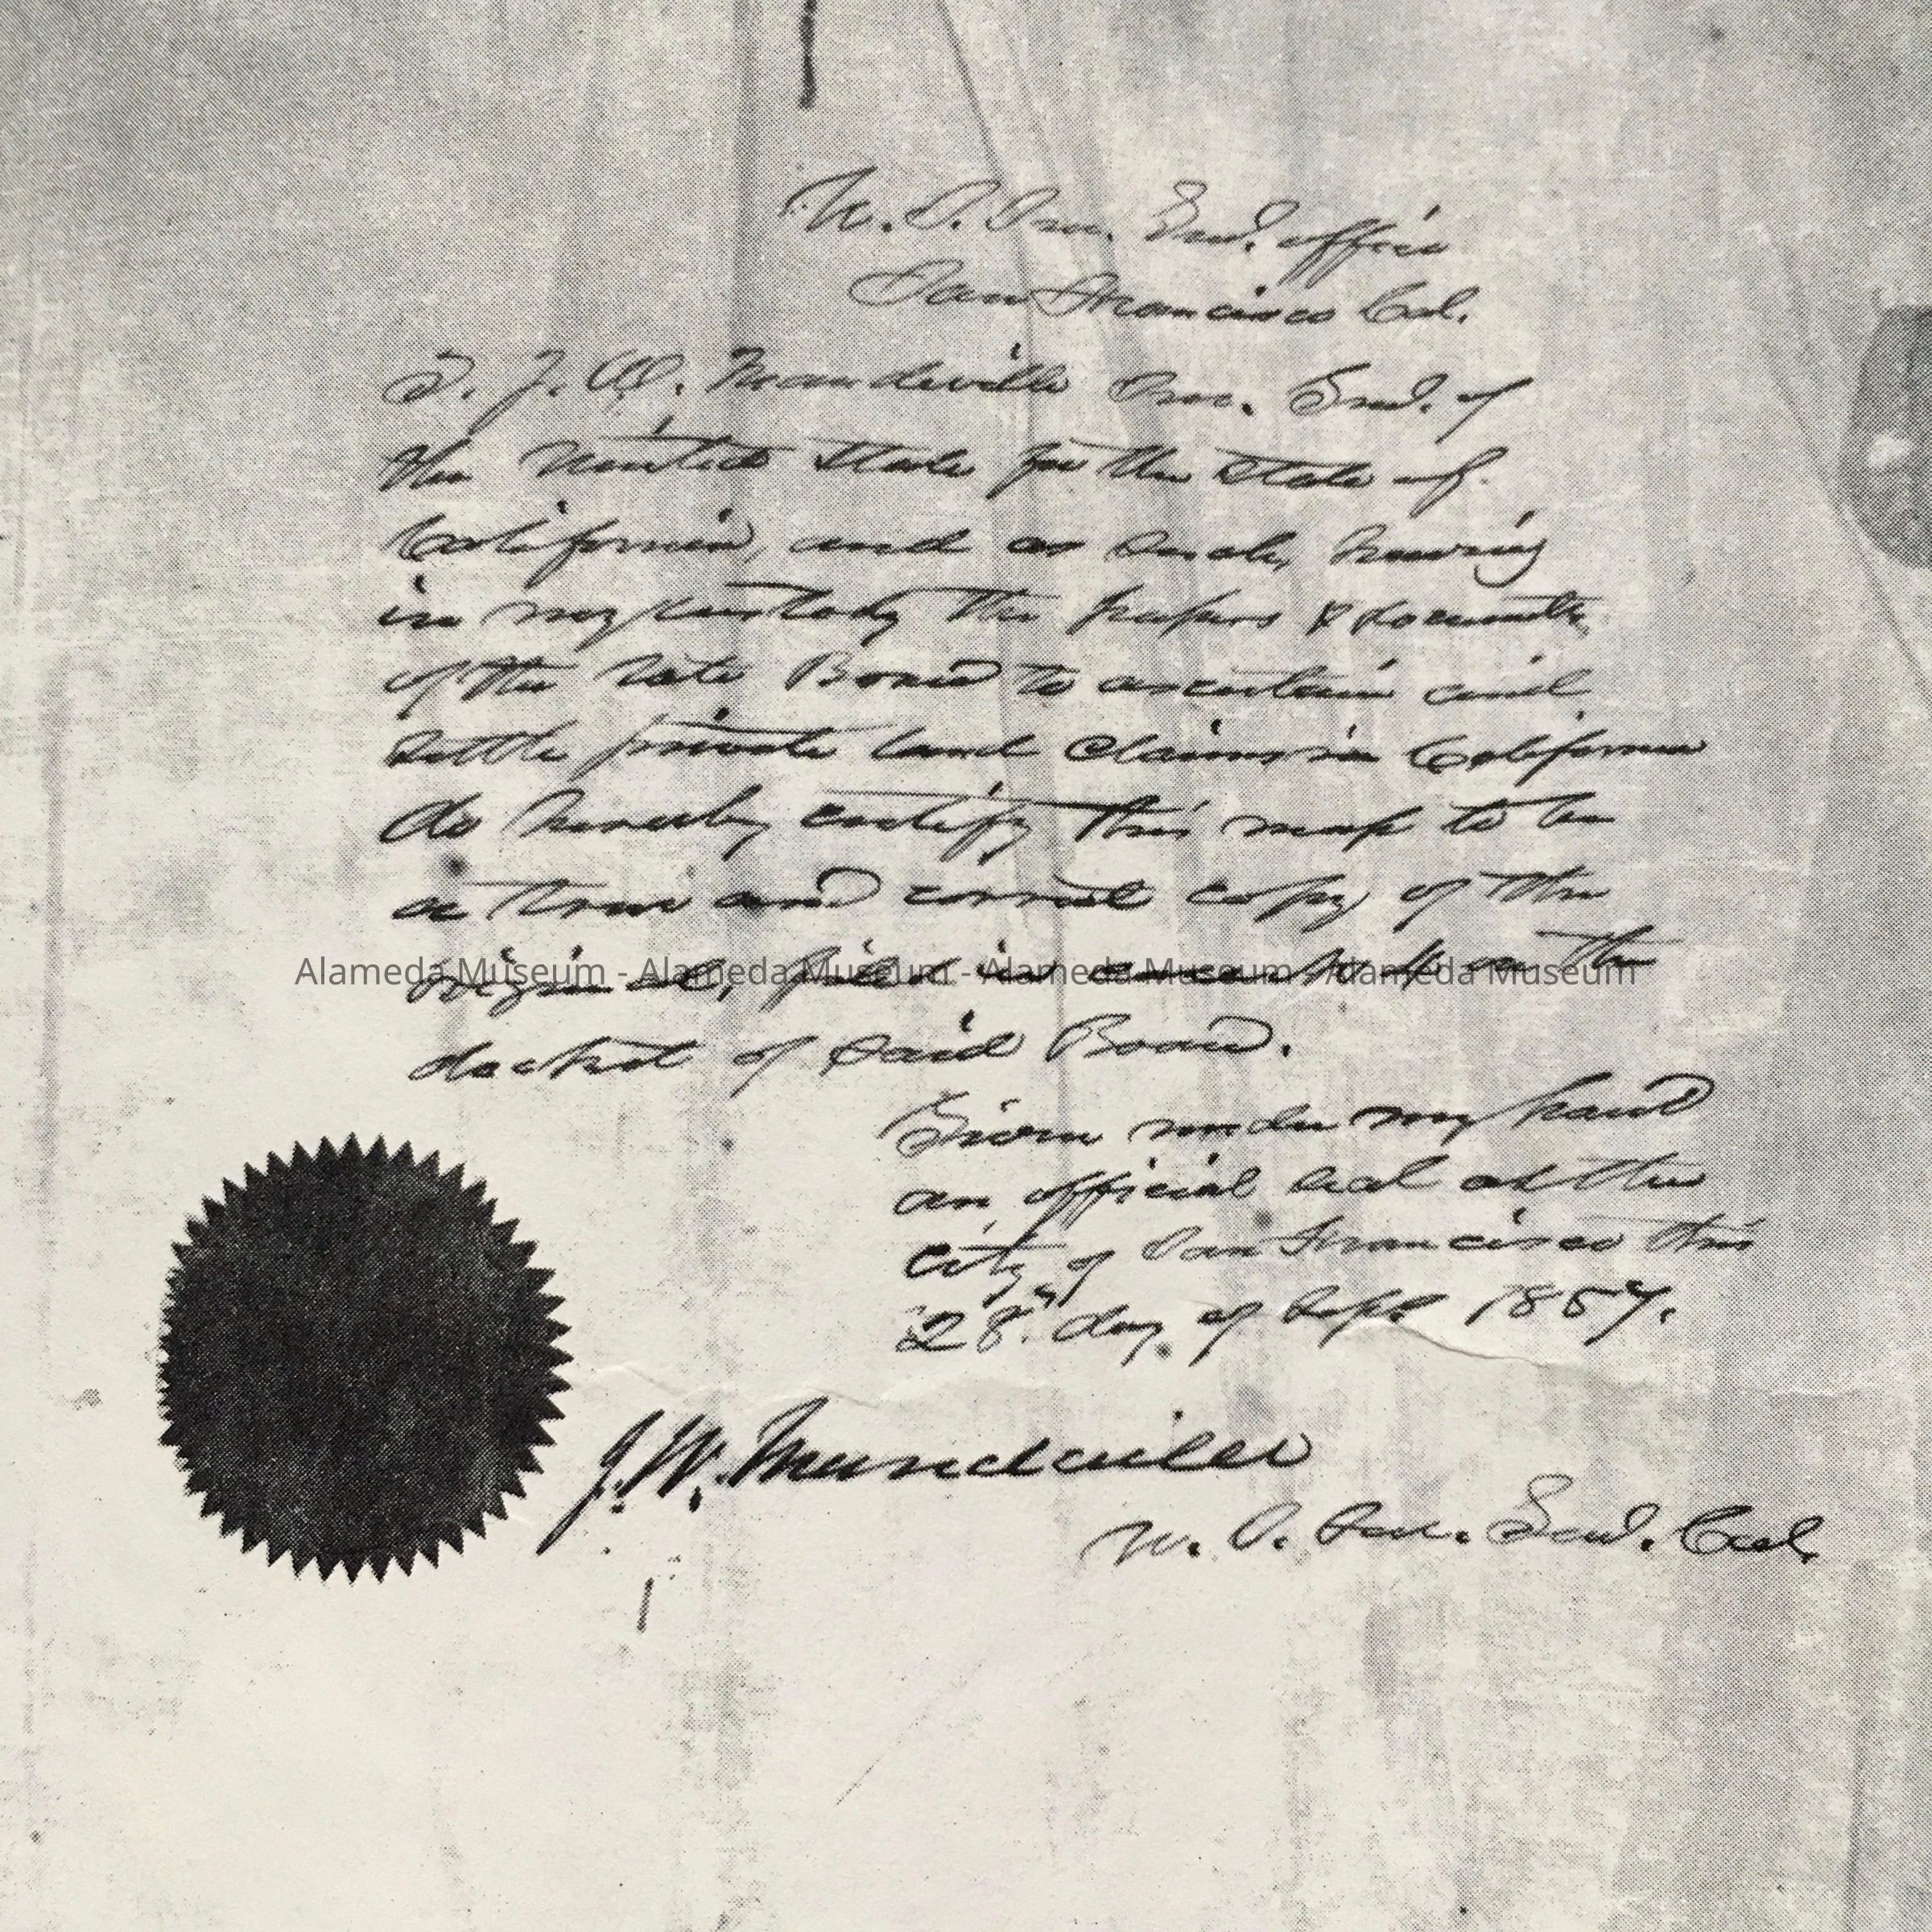 U. S. Sur. Genl. office
San Francisco Cal.
I, J. W. Mandeville Sur. Genl. of
the United States for the State of
California, and as such, having
in my custody the papers & documents,
of the late Board to ascertain and
settle private land claims in California
do hereby certify this map to be
a true and correct copy of the
original, filed in case on the
Alameda Museum - Alameda Museum - Alameda Museum - Alameda Museum
docket of said Board.
Given under my hand
an official seal at the
City of San Francisco this
28th day of Sept 1857.
J. W. Mandeville
U. S. Sur. Genl. Cal.